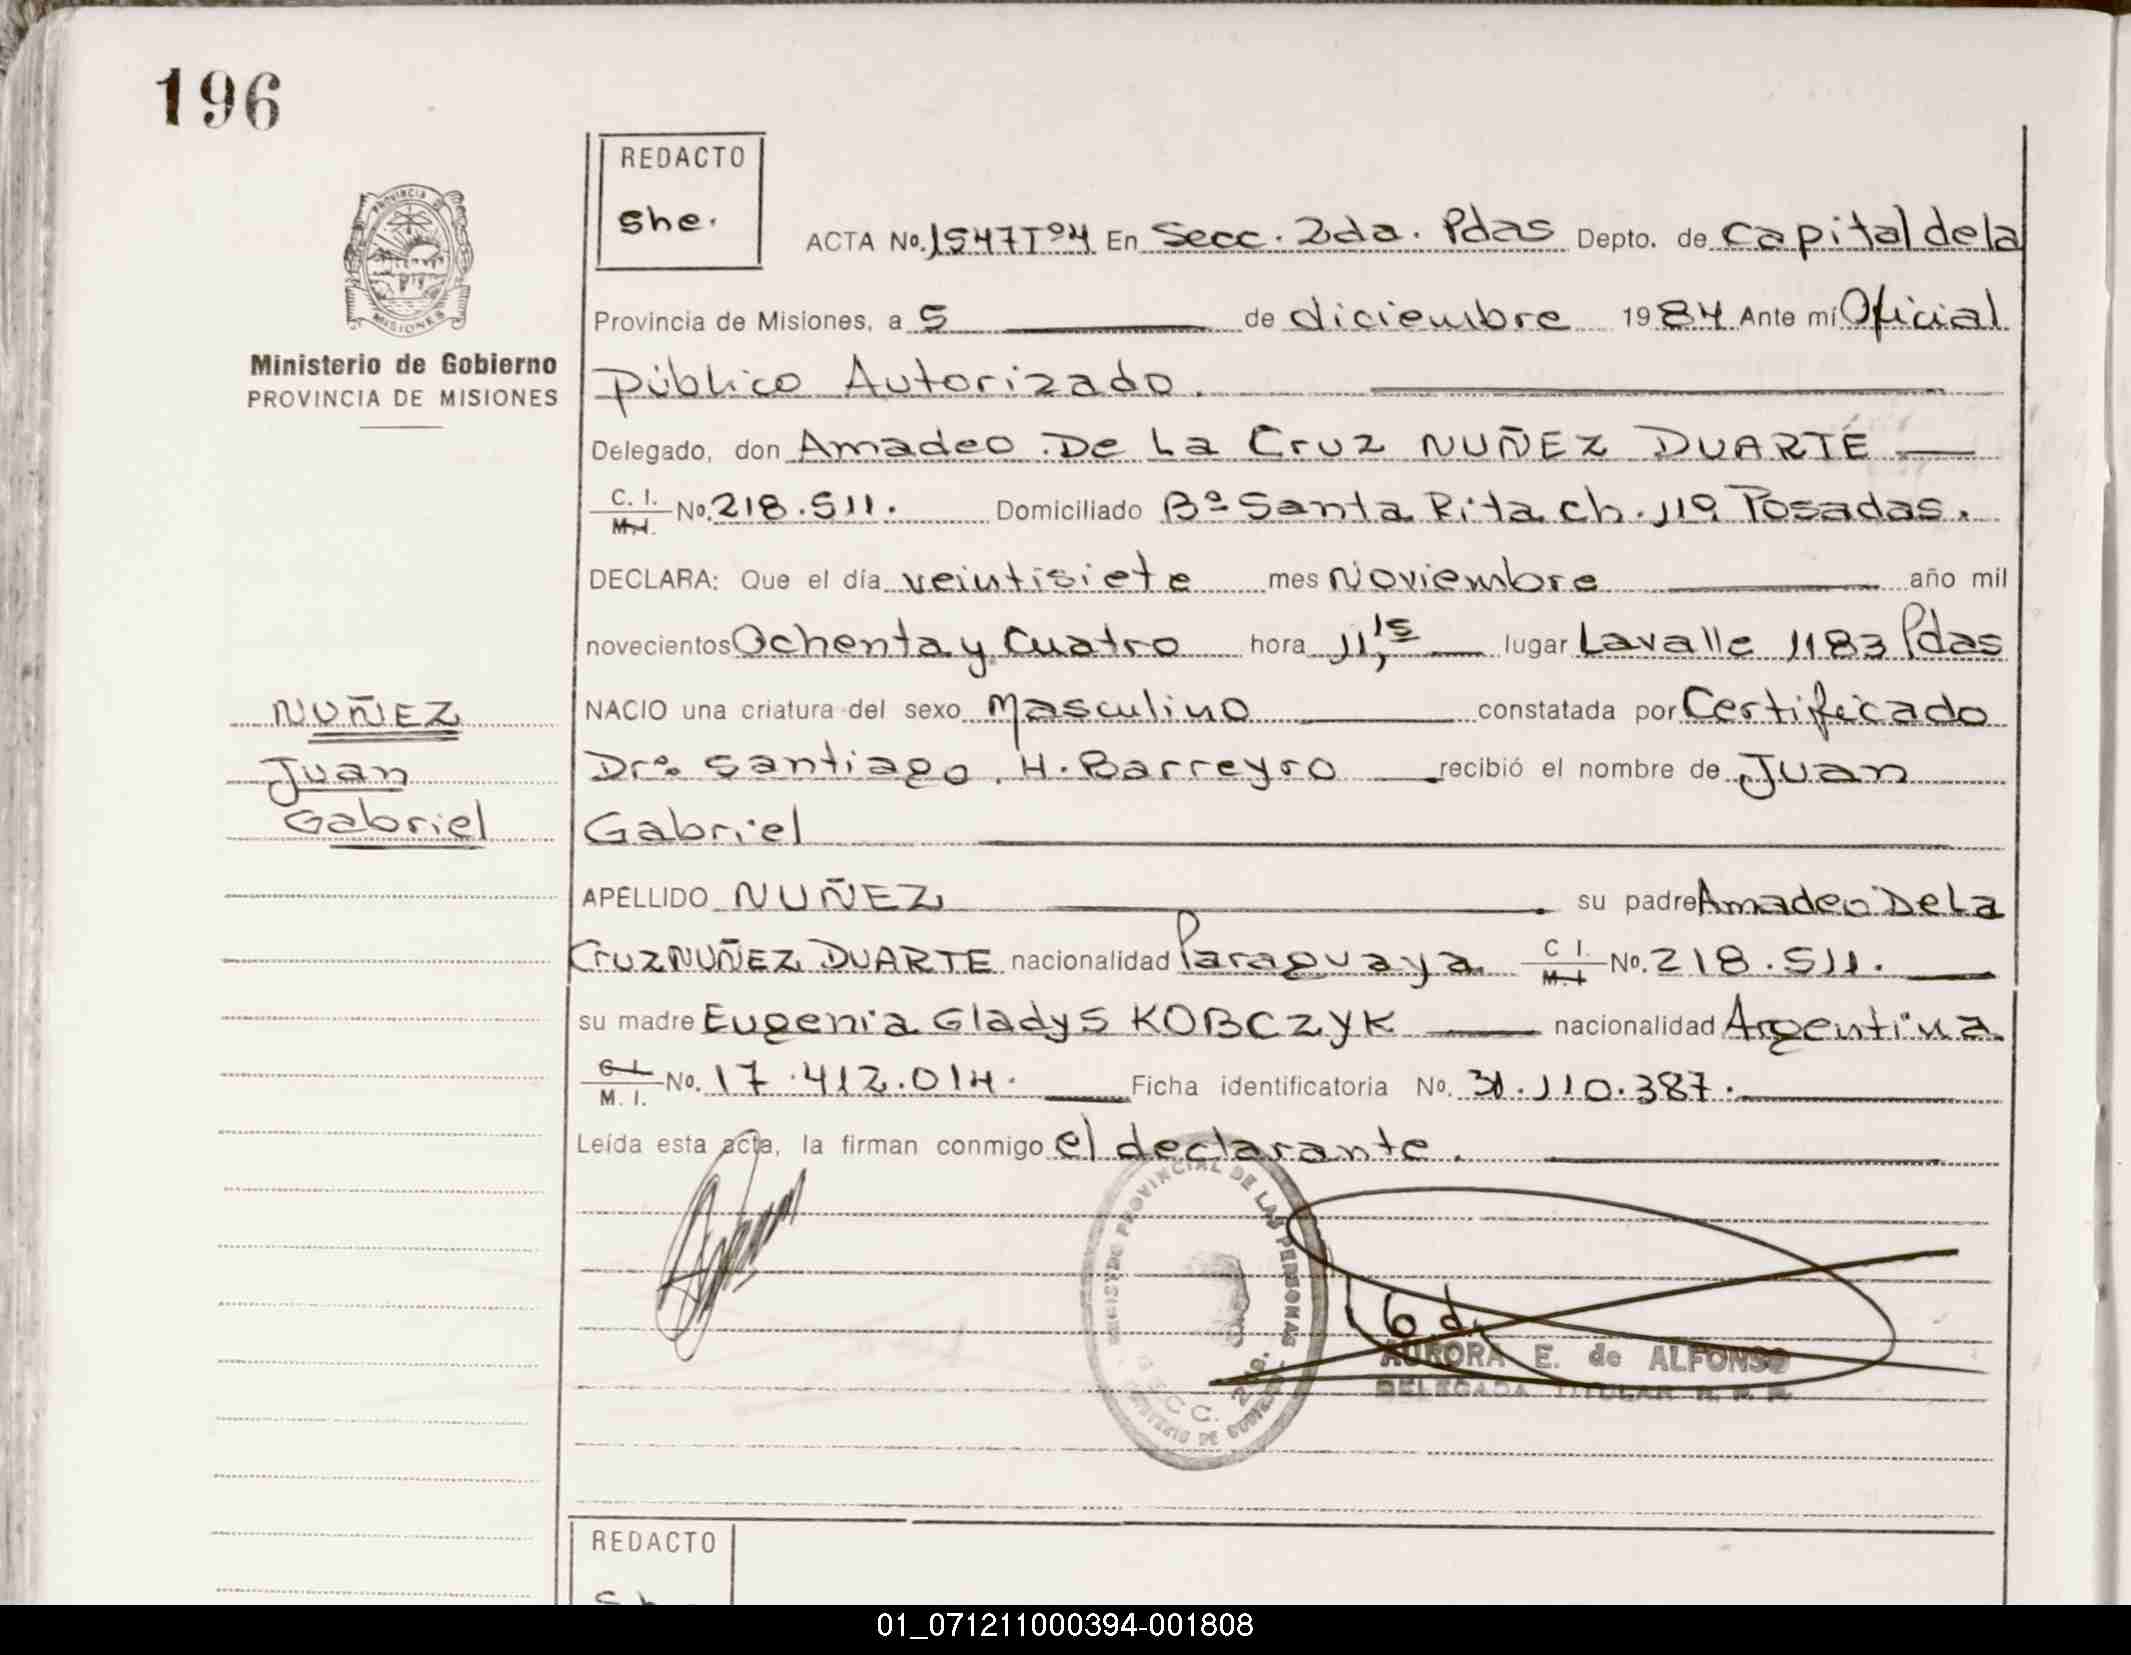 196
REDACTO
she.
PROVINCIA DE
MISIONES
Ministerio de Gobierno
PROVINCIA DE MISIONES
ACTA No. 1547 Tº4 En Secc. 2da. Pdas Depto. de Capital de la
Provincia de Misiones, a 5 de diciembre 1984 Ante mí Oficial
Público Autorizado.
Delegado, don Amadeo De La Cruz NUÑEZ DUARTE
C. I.
M. I. No. 218.511. Domiciliado Bº Santa Rita ch. 119 Posadas.
DECLARA: Que el día veintisiete mes Noviembre año mil
novecientos Ochenta y Cuatro hora 11,15 lugar Lavalle 1183 Pdas
NUÑEZ
Juan
Gabriel
NACIO una criatura del sexo Masculino constatada por Certificado
Dr. Santiago. H. Barreyro recibió el nombre de Juan
Gabriel
APELLIDO NUÑEZ su padre Amadeo De La
Cruz NUÑEZ DUARTE nacionalidad Paraguaya C I.
M. I No. 218.511.
su madre Eugenia Gladys KOBCZYK nacionalidad Argentina
C I
M. I. No. 17.412.014. Ficha identificatoria No. 31.110.387.
Leída esta acta, la firman conmigo el declarante.
REGISTRO PROVINCIAL DE LAS PERSONAS
SECC. 2da.
MINISTERIO DE GOBIERNO
AURORA E. de ALFONSO
DELEGADA TITULAR R. P. P.
REDACTO
01_071211000394-001808